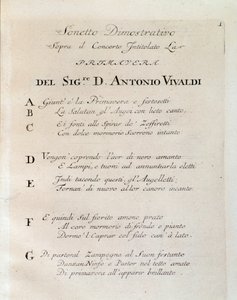 Sonetto Dimostrativo
Sopra il Concerto Intitolato La
PRIMAVERA
DEL SIG.re D. ANTONIO VIVALDI
A Giunt' è la Primavera e festosetti
B La Salutan gl' Augei con lieto canto,
C E i fonti allo Spirar de' Zeffiretti
Con dolce mormorio Scorrono intanto
D Vengon' coprendo l' aer di nero amanto
E Lampi, e tuoni ad annuntiarla eletti
E Indi tacendo questi, gl' Augelletti
Tornan' di nuovo al lor canoro incanto
F E quindi sul fiorito ameno prato
Al caro mormorio di fronde e piante
Dorme 'l Caprar col fido can' à lato
G Di pastoral Zampogna al Suon festante
Danzan Ninfe e Pastor nel tetto amato
Di primavera all' apparir brillante.